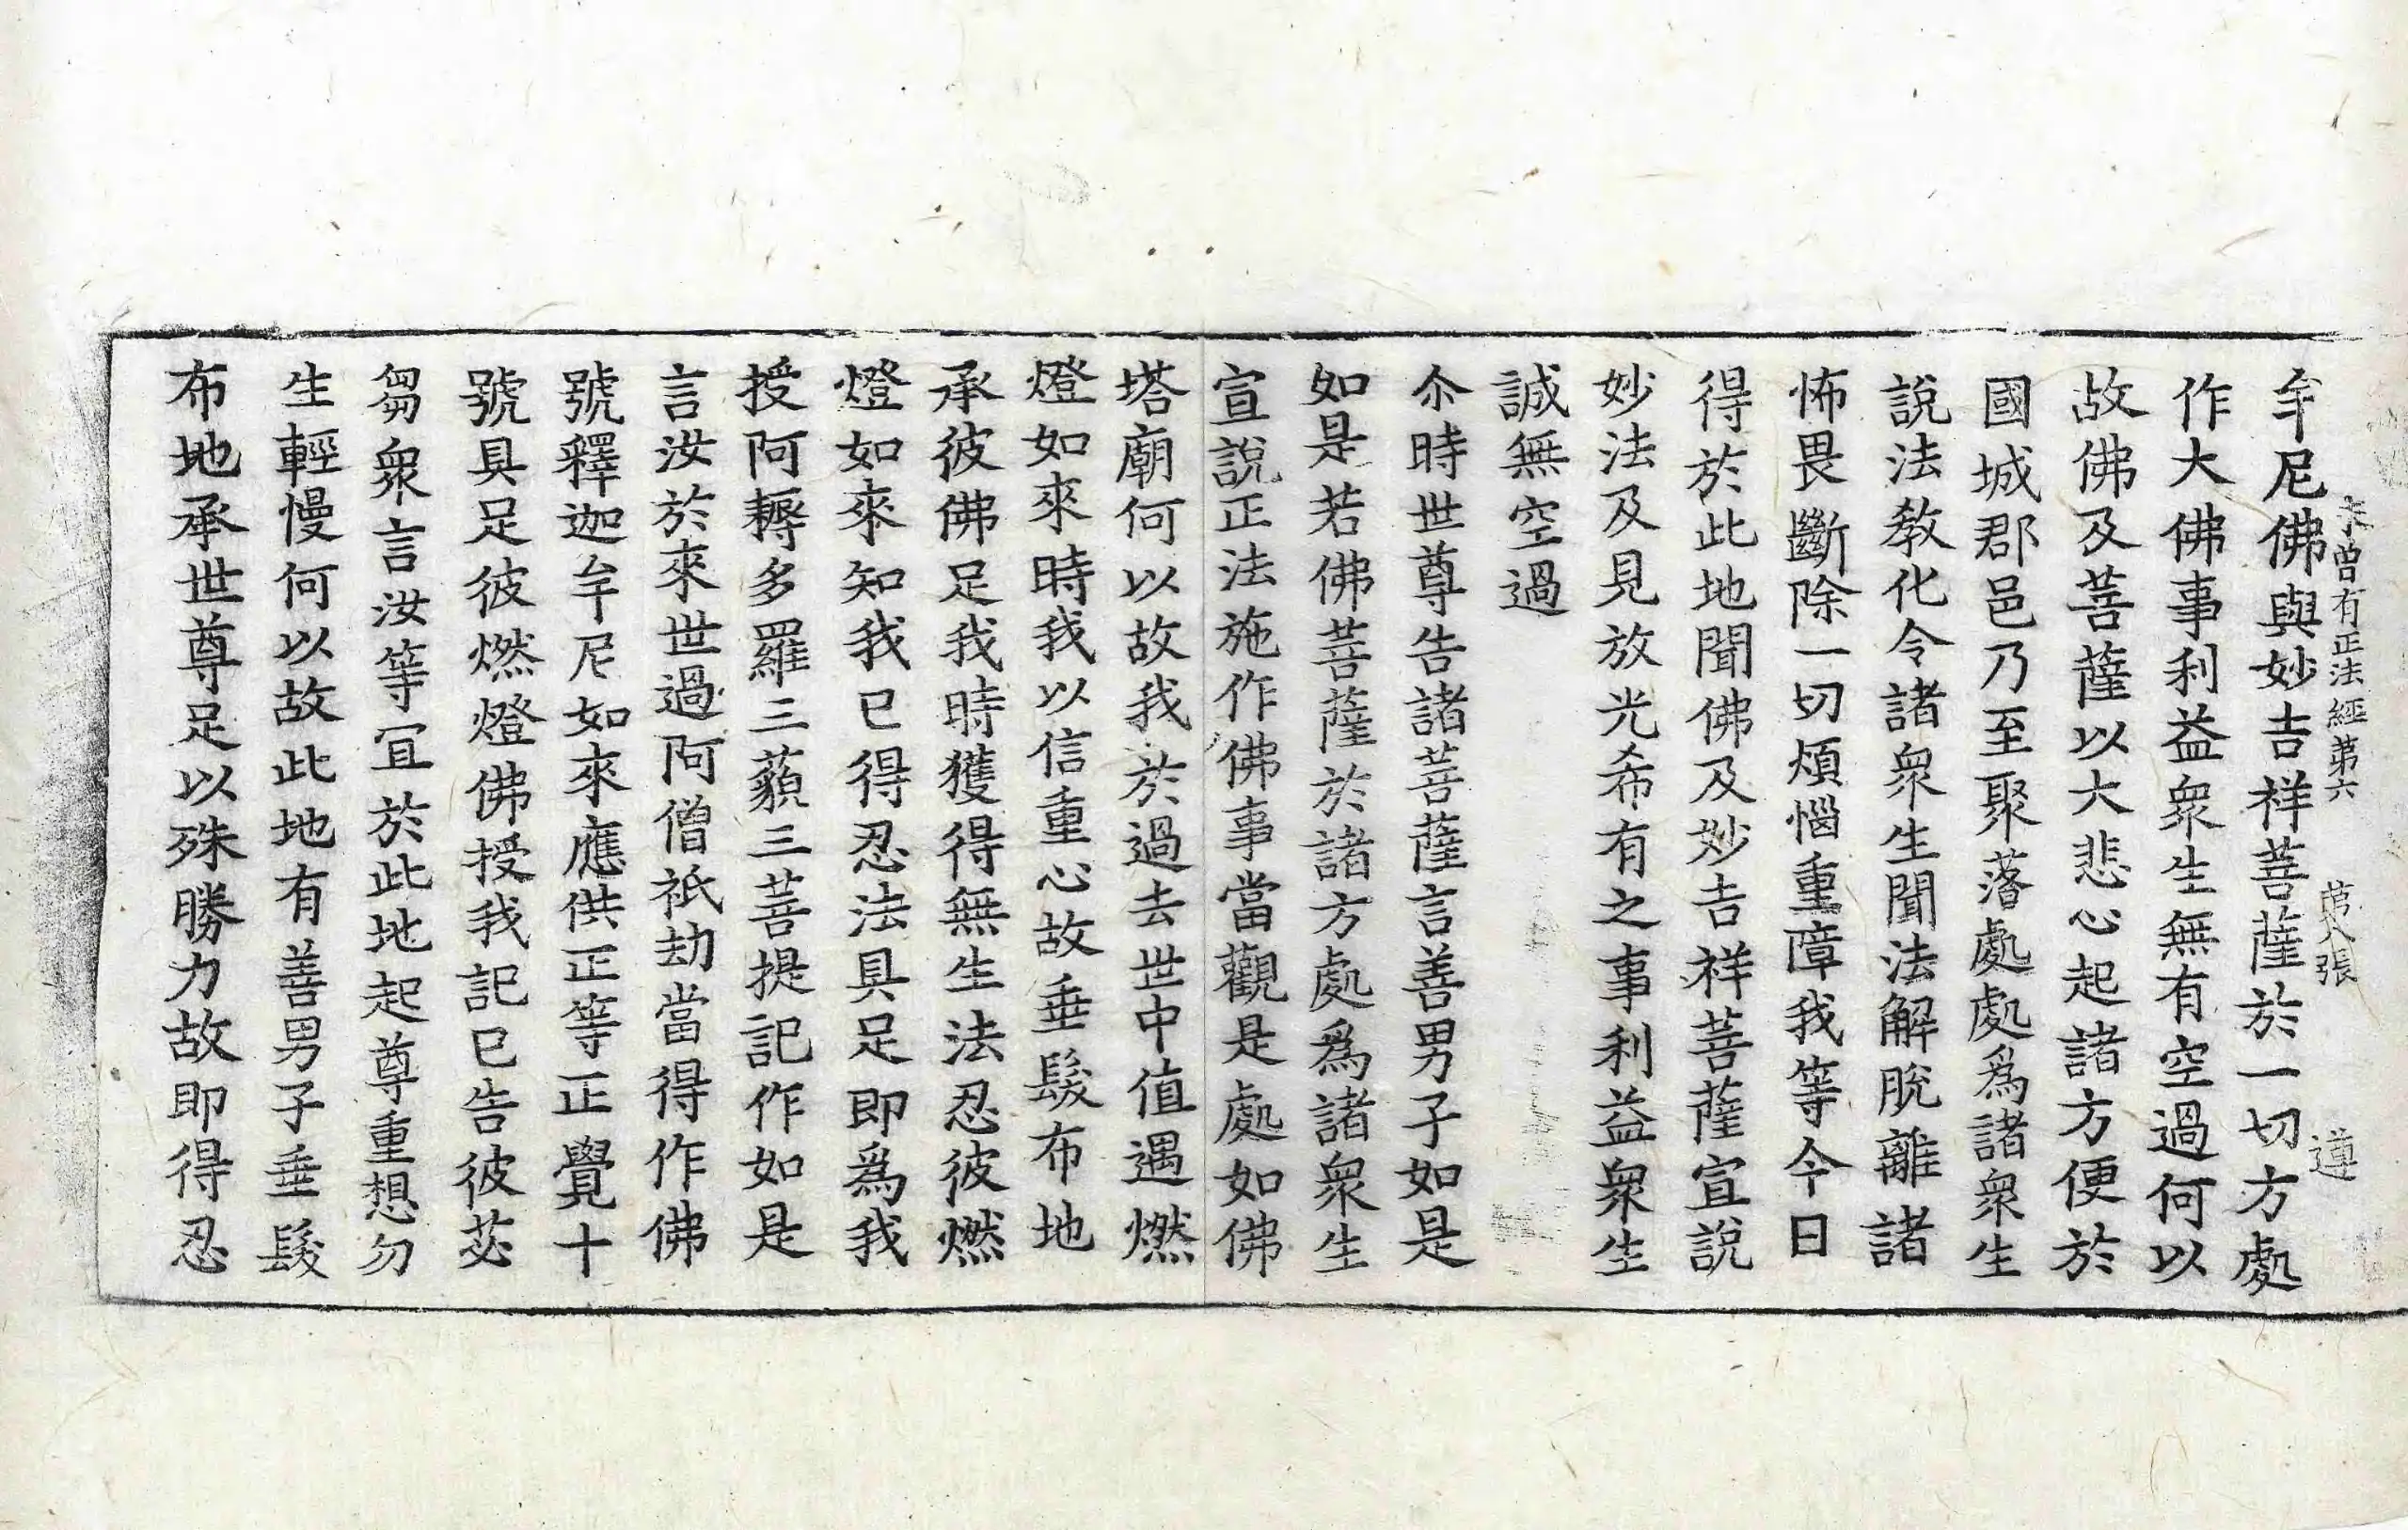 未曾有正法經第六 第八張 遵
牟尼佛與妙吉祥菩薩於一切方處
作大佛事利益衆生無有空過何以
故佛及菩薩以大悲心起諸方便於
國城郡邑乃至聚落處處爲諸衆生
說法教化令諸衆生聞法解脫離諸
怖畏斷除一切煩惱重障我等今日
得於此地聞佛及妙吉祥菩薩宣說
妙法及見放光希有之事利益衆生
誠無空過
尒時世尊告諸菩薩言善男子如是
如是若佛菩薩於諸方處爲諸衆生
宣說正法施作佛事當觀是處如佛
塔廟何以故我於過去世中值遇燃
燈如來時我以信重心故垂髮布地
承彼佛足我時獲得無生法忍彼燃
燈如來知我已得忍法具足即爲我
授阿耨多羅三藐三菩提記作如是
言汝於來世過阿僧祇劫當得作佛
號釋迦牟尼如來應供正等正覺十
號具足彼燃燈佛授我記已告彼苾
芻衆言汝等宜於此地起尊重想勿
生輕慢何以故此地有善男子垂髮
布地承世尊足以殊勝力故即得忍